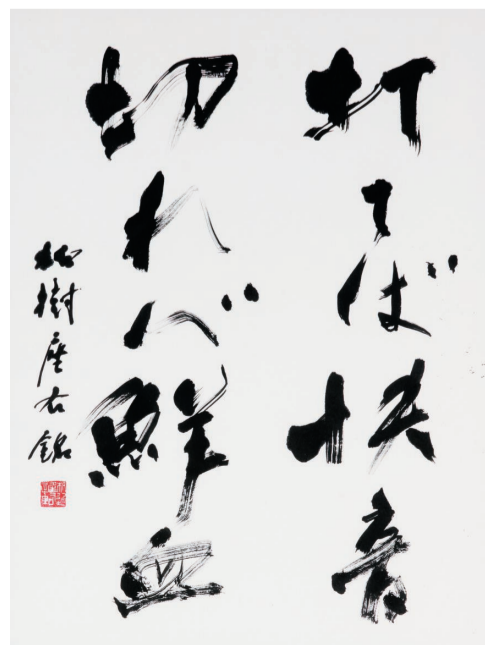 打てば快音
切れバ鮮血
樹座右銘